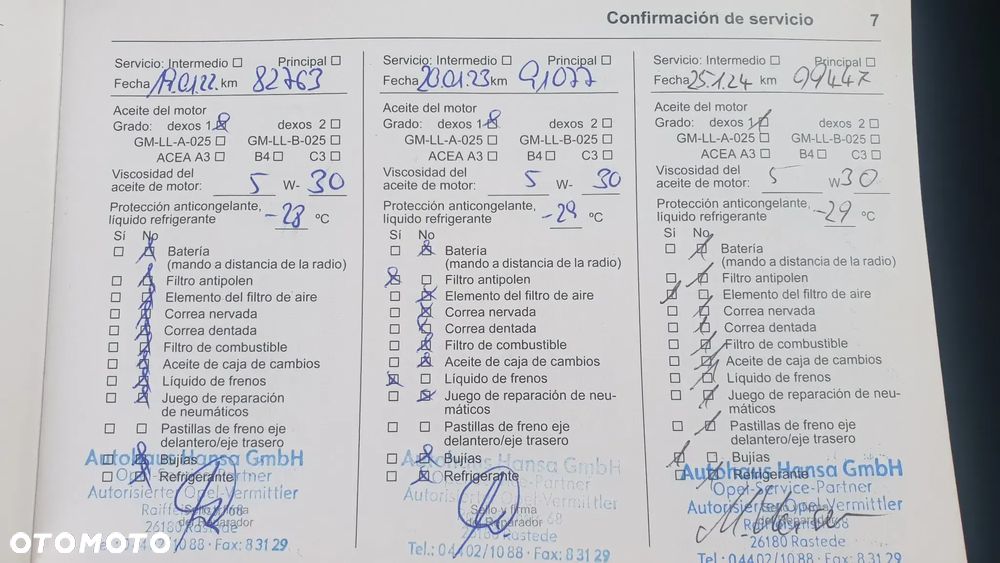 Confirmación de servicio 7
Servicio: Intermedio ☐ Principal ☐
Fecha 17.01.22 km 82763
Aceite del motor
Grado: dexos 1 ☒ dexos 2 ☐
GM-LL-A-025 ☐ GM-LL-B-025 ☐
ACEA A3 ☐ B4 ☐ C3 ☐
Viscosidad del
aceite de motor: 5 W- 30
Protección anticongelante,
líquido refrigerante -28 °C
Sí No
Batería
(mando a distancia de la radio)
Filtro antipolen
Elemento del filtro de aire
Correa nervada
Correa dentada
Filtro de combustible
Aceite de caja de cambios
Líquido de frenos
Juego de reparación
de neumáticos
Pastillas de freno eje
delantero/eje trasero
Bujías
Refrigerante
Sello y firma
del reparador
Autohaus Hansa GmbH
Opel-Service-Partner
Autorisierter Opel-Vermittler
68
26180 Rastede
Tel.: 04402/1088 · Fax: 83129
Servicio: Intermedio ☐ Principal ☐
Fecha 20.01.23 km 91077
Aceite del motor
Grado: dexos 1 ☒ dexos 2 ☐
GM-LL-A-025 ☐ GM-LL-B-025 ☐
ACEA A3 ☐ B4 ☐ C3 ☐
Viscosidad del
aceite de motor: 5 W- 30
Protección anticongelante,
líquido refrigerante -29 °C
Sí No
Batería
(mando a distancia de la radio)
Filtro antipolen
Elemento del filtro de aire
Correa nervada
Correa dentada
Filtro de combustible
Aceite de caja de cambios
Líquido de frenos
Juego de reparación de neu-
máticos
Pastillas de freno eje
delantero/eje trasero
Bujías
Refrigerante
Sello y firma
del reparador
Autohaus Hansa GmbH
Opel-Service-Partner
Autorisierter Opel-Vermittler
68
26180 Rastede
Tel.: 04402/1088 · Fax: 83129
Servicio: Intermedio ☐ Principal ☐
Fecha 25.1.24 km 99447
Aceite del motor
Grado: dexos 1 ☒ dexos 2 ☐
GM-LL-A-025 ☐ GM-LL-B-025 ☐
ACEA A3 ☐ B4 ☐ C3 ☐
Viscosidad del
aceite de motor: 5 W 30
Protección anticongelante,
líquido refrigerante -29 °C
Sí No
Batería
(mando a distancia de la radio)
Filtro antipolen
Elemento del filtro de aire
Correa nervada
Correa dentada
Filtro de combustible
Aceite de caja de cambios
Líquido de frenos
Juego de reparación de neu-
máticos
Pastillas de freno eje
delantero/eje trasero
Bujías
Refrigerante
Autohaus Hansa GmbH
Opel-Service-Partner
Autorisierter Opel-Vermittler
68
26180 Rastede
Tel.: 04402/1088 · Fax: 83129
OTOMOTO